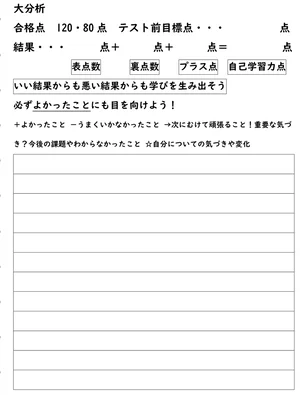 大分析
合格点　120・80点　テスト前目標点・・・　　　　　点
結果・・・　　　点＋　　　点＋　　　点＝　　　　　点
表点数　裏点数　プラス点　自己学習力点
いい結果からも悪い結果からも学びを生み出そう
必ずよかったことにも目を向けよう！
＋よかったこと　－うまくいかなかったこと　→次にむけて頑張ること！重要な気づ
き？今後の課題やわからなかったこと　☆自分についての気づきや変化